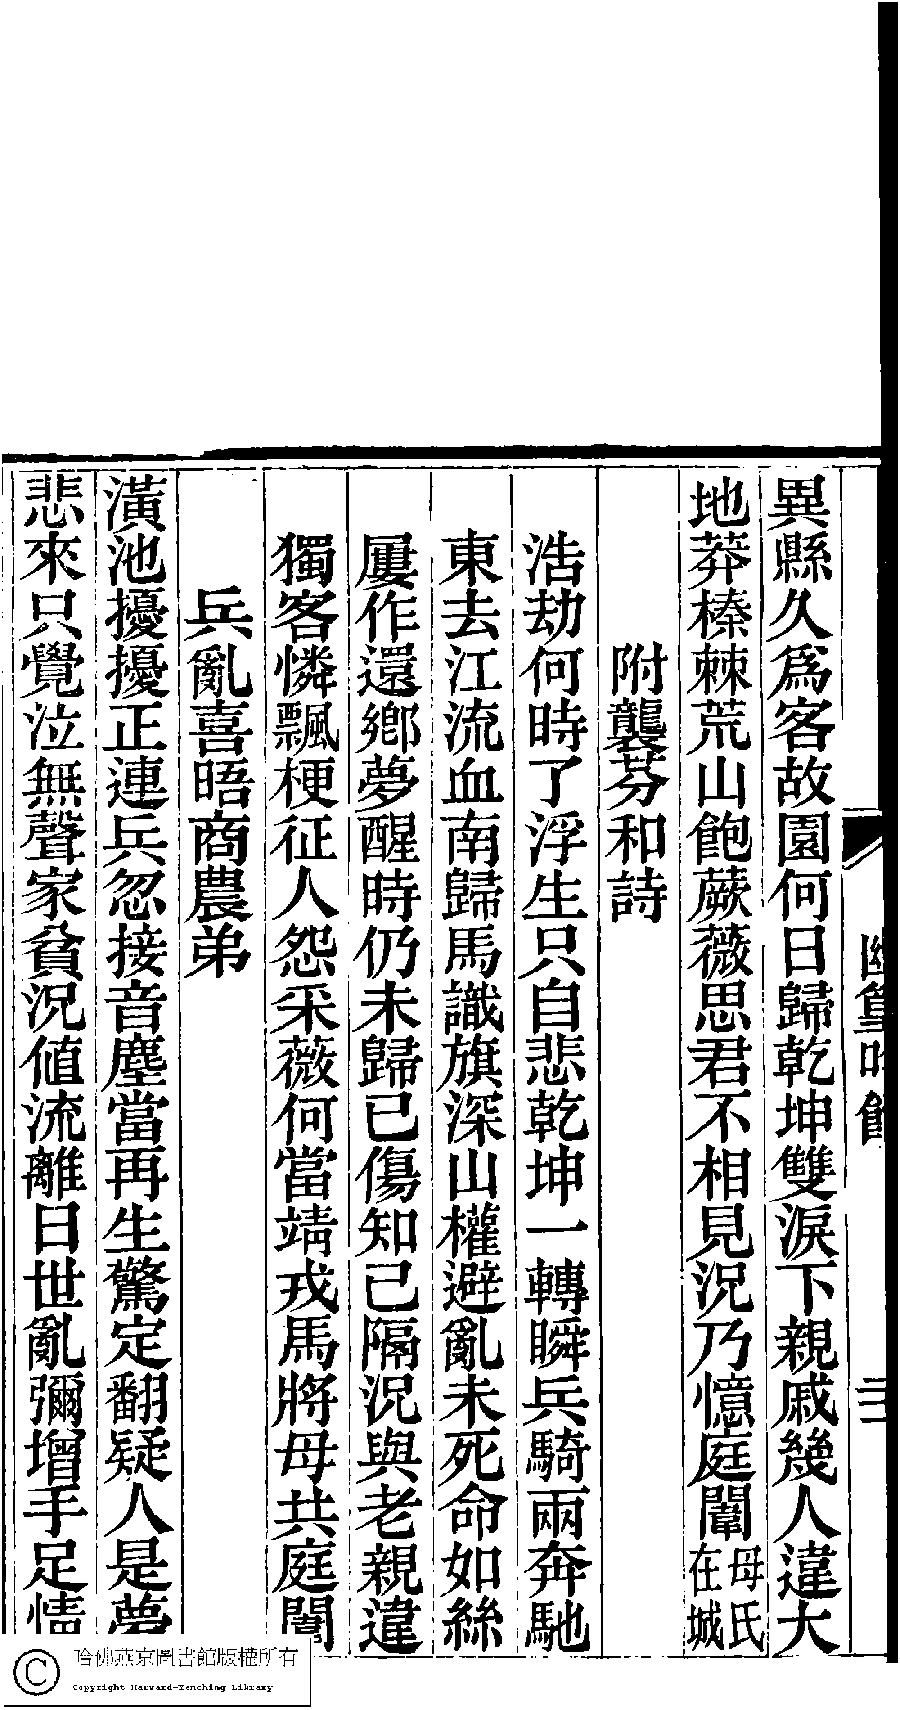 幽篁吟館
異縣久爲客故園何日歸乾坤雙淚下親戚幾人違大
地莽榛棘荒山飽蕨薇思君不相見況乃憶庭闈母氏在城
附龔芬和詩
浩劫何時了浮生只自悲乾坤一轉瞬兵騎兩奔馳
東去江流血南歸馬識旗深山權避亂未死命如絲
屢作還鄉夢醒時仍未歸已傷知己隔況與老親違
獨客憐飄梗征人怨采薇何當靖戎馬將母共庭闈
兵亂喜晤商農弟
潢池擾擾正連兵忽接音塵當再生驚定翻疑人是夢
悲來只覺泣無聲家貧況値流離日世亂彌增手足情
哈佛燕京圖書館版權所有
Copyright Harvard-Yenching Library